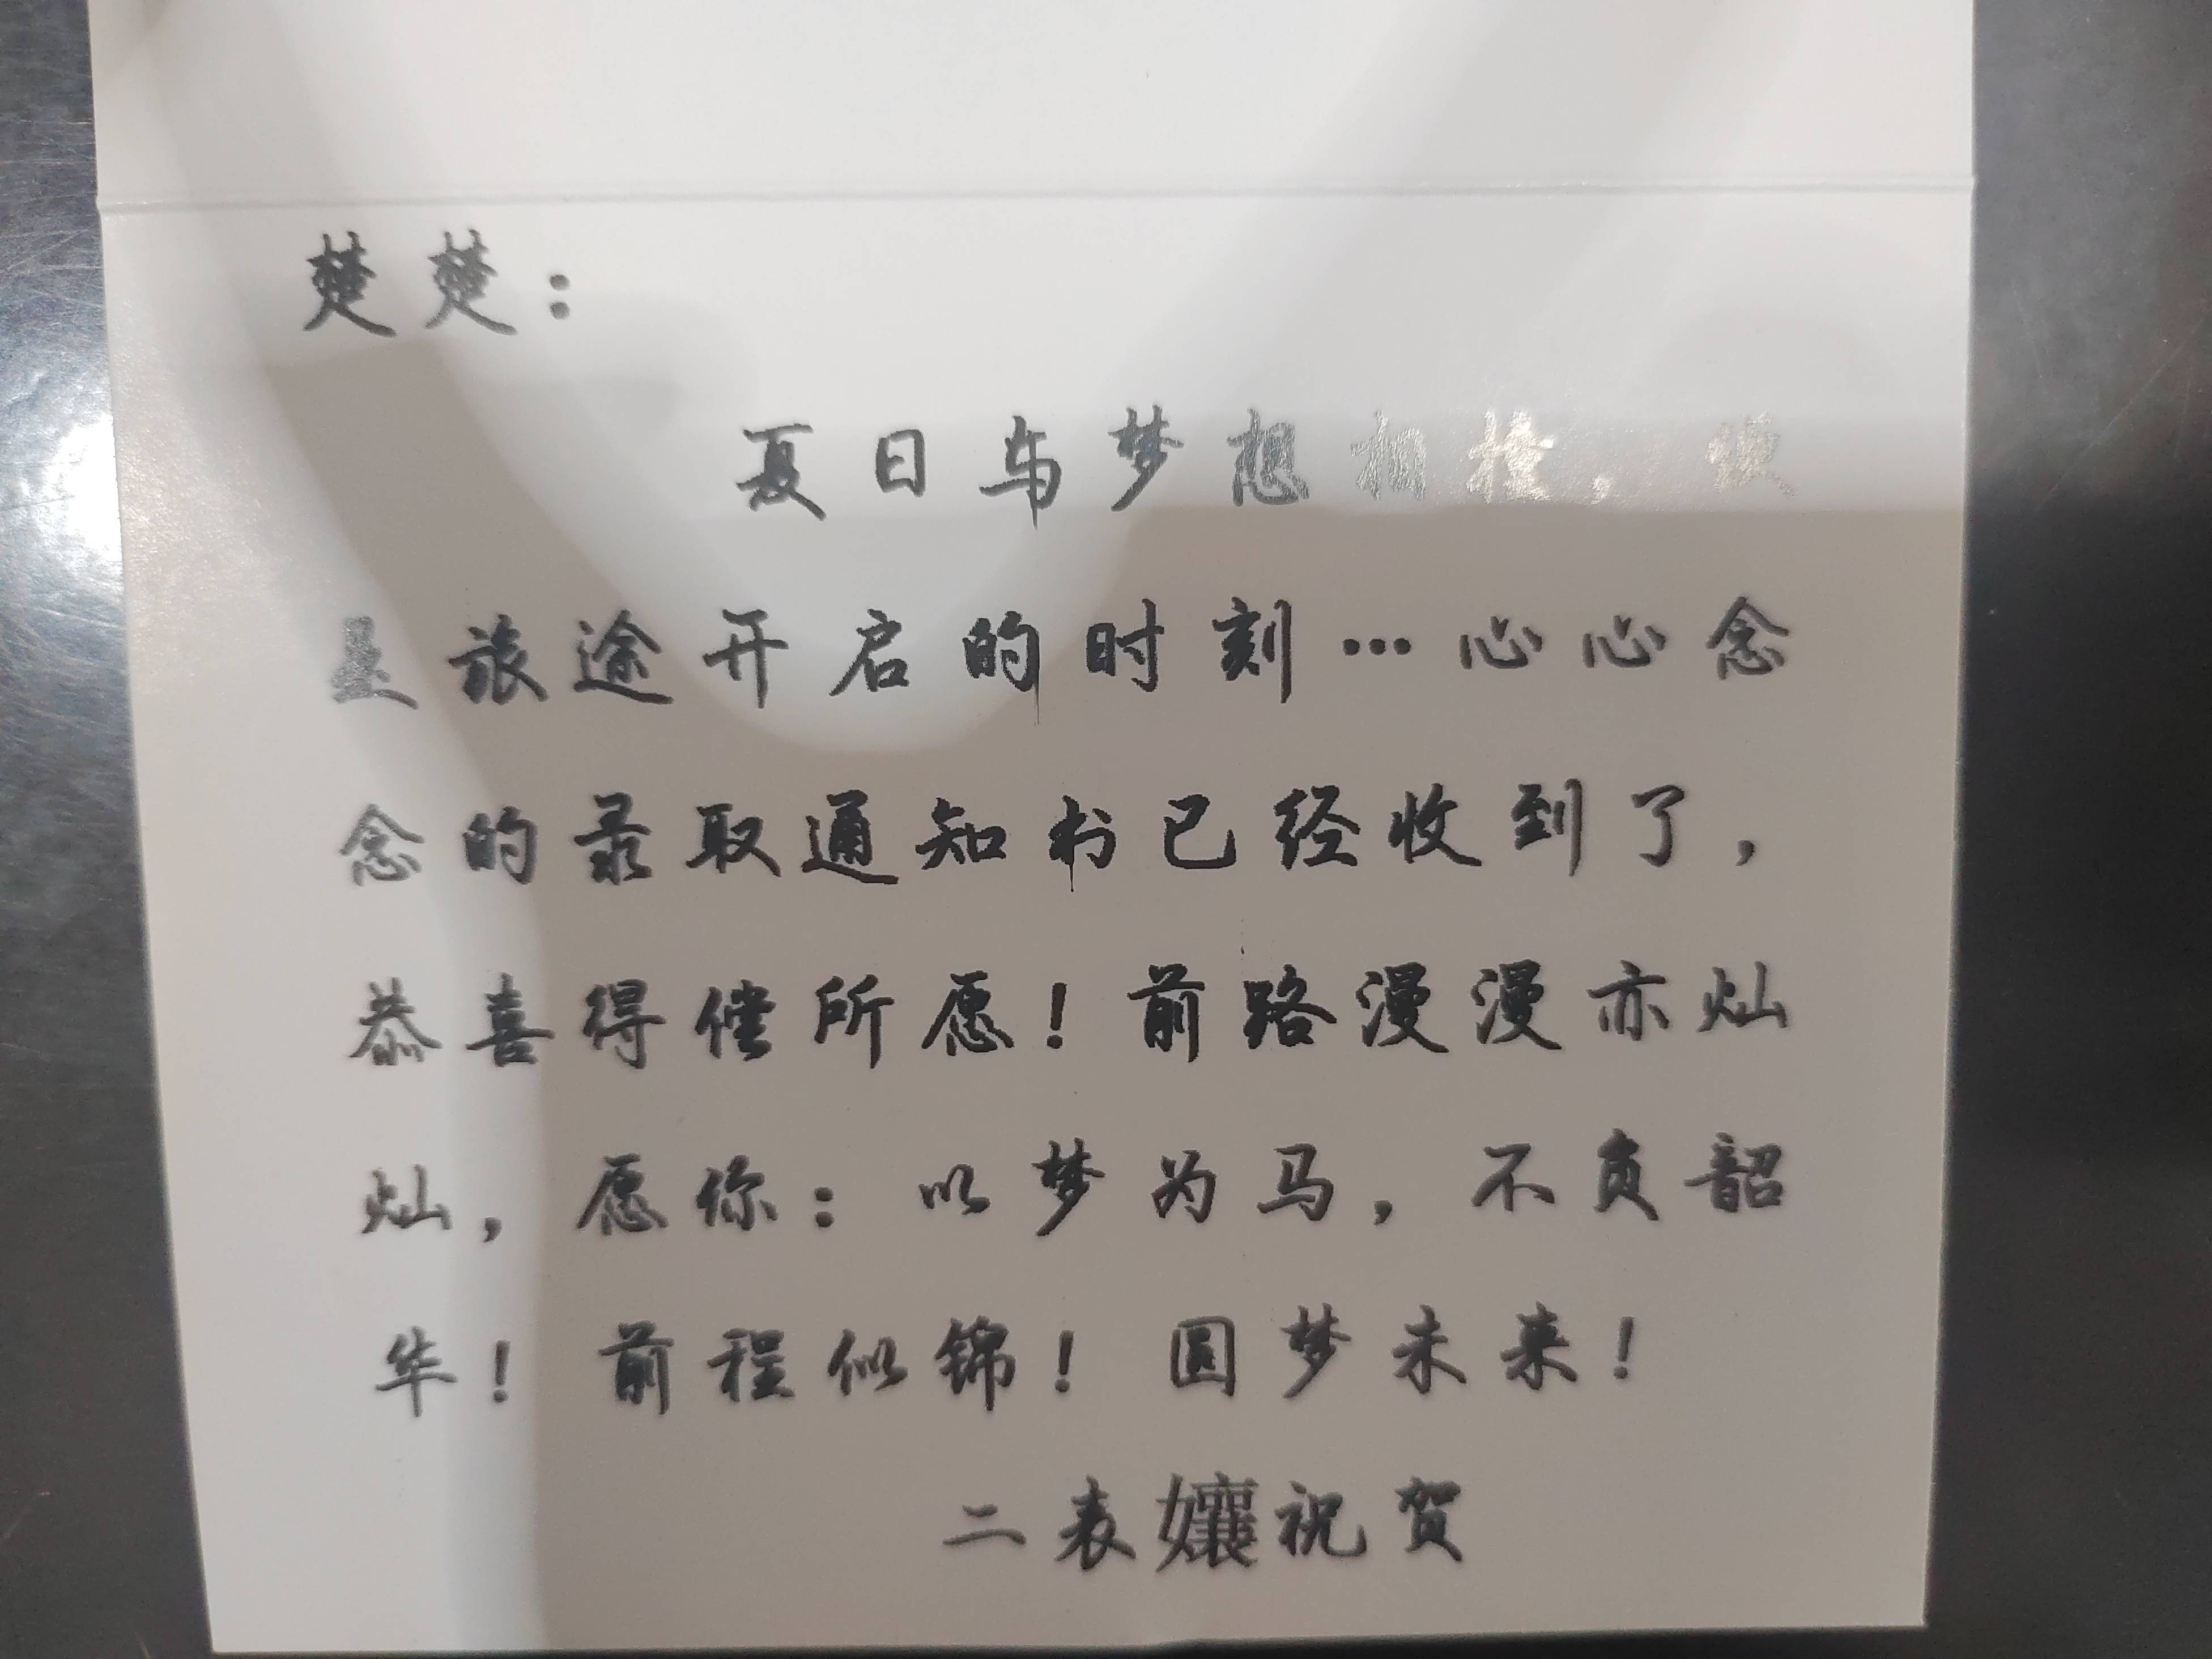 楚楚：
夏日与梦想相撞，便
是旅途开启的时刻…心心念
念的录取通知书已经收到了，
恭喜得偿所愿！前路漫漫亦灿
灿，愿你：以梦为马，不负韶
华！前程似锦！圆梦未来！
二表孃祝贺